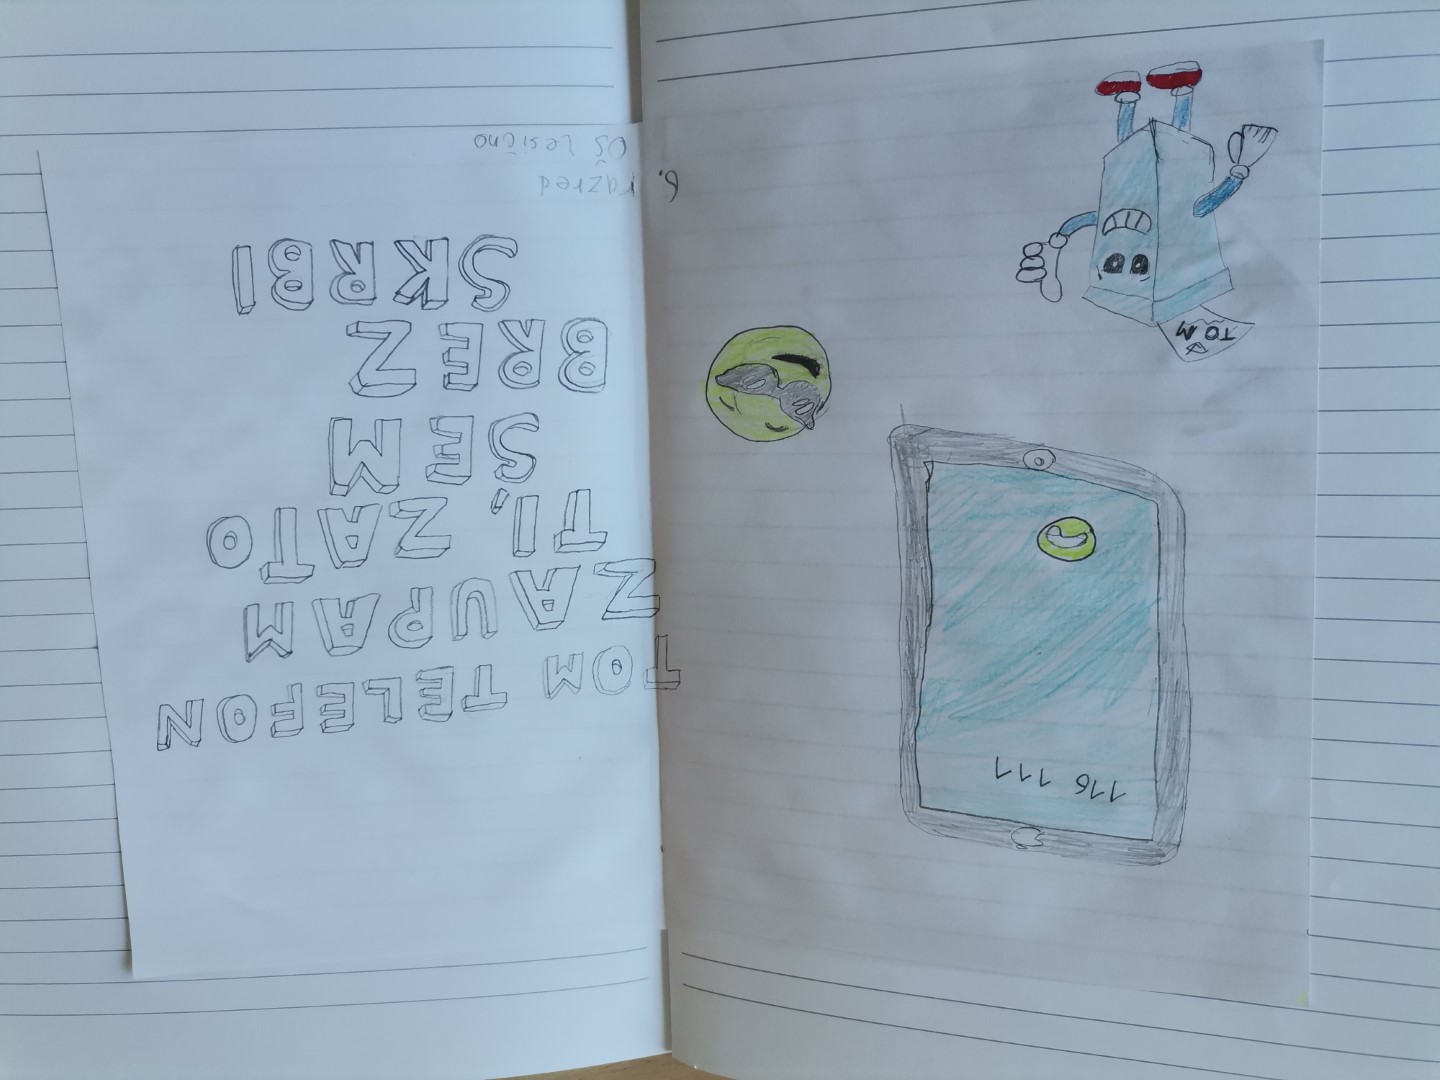 116 111
TOM
TOM TELEFON
ZAUPAM
TI, ZATO
SEM
BREZ
SKRBI
6. razred
OŠ Lesično